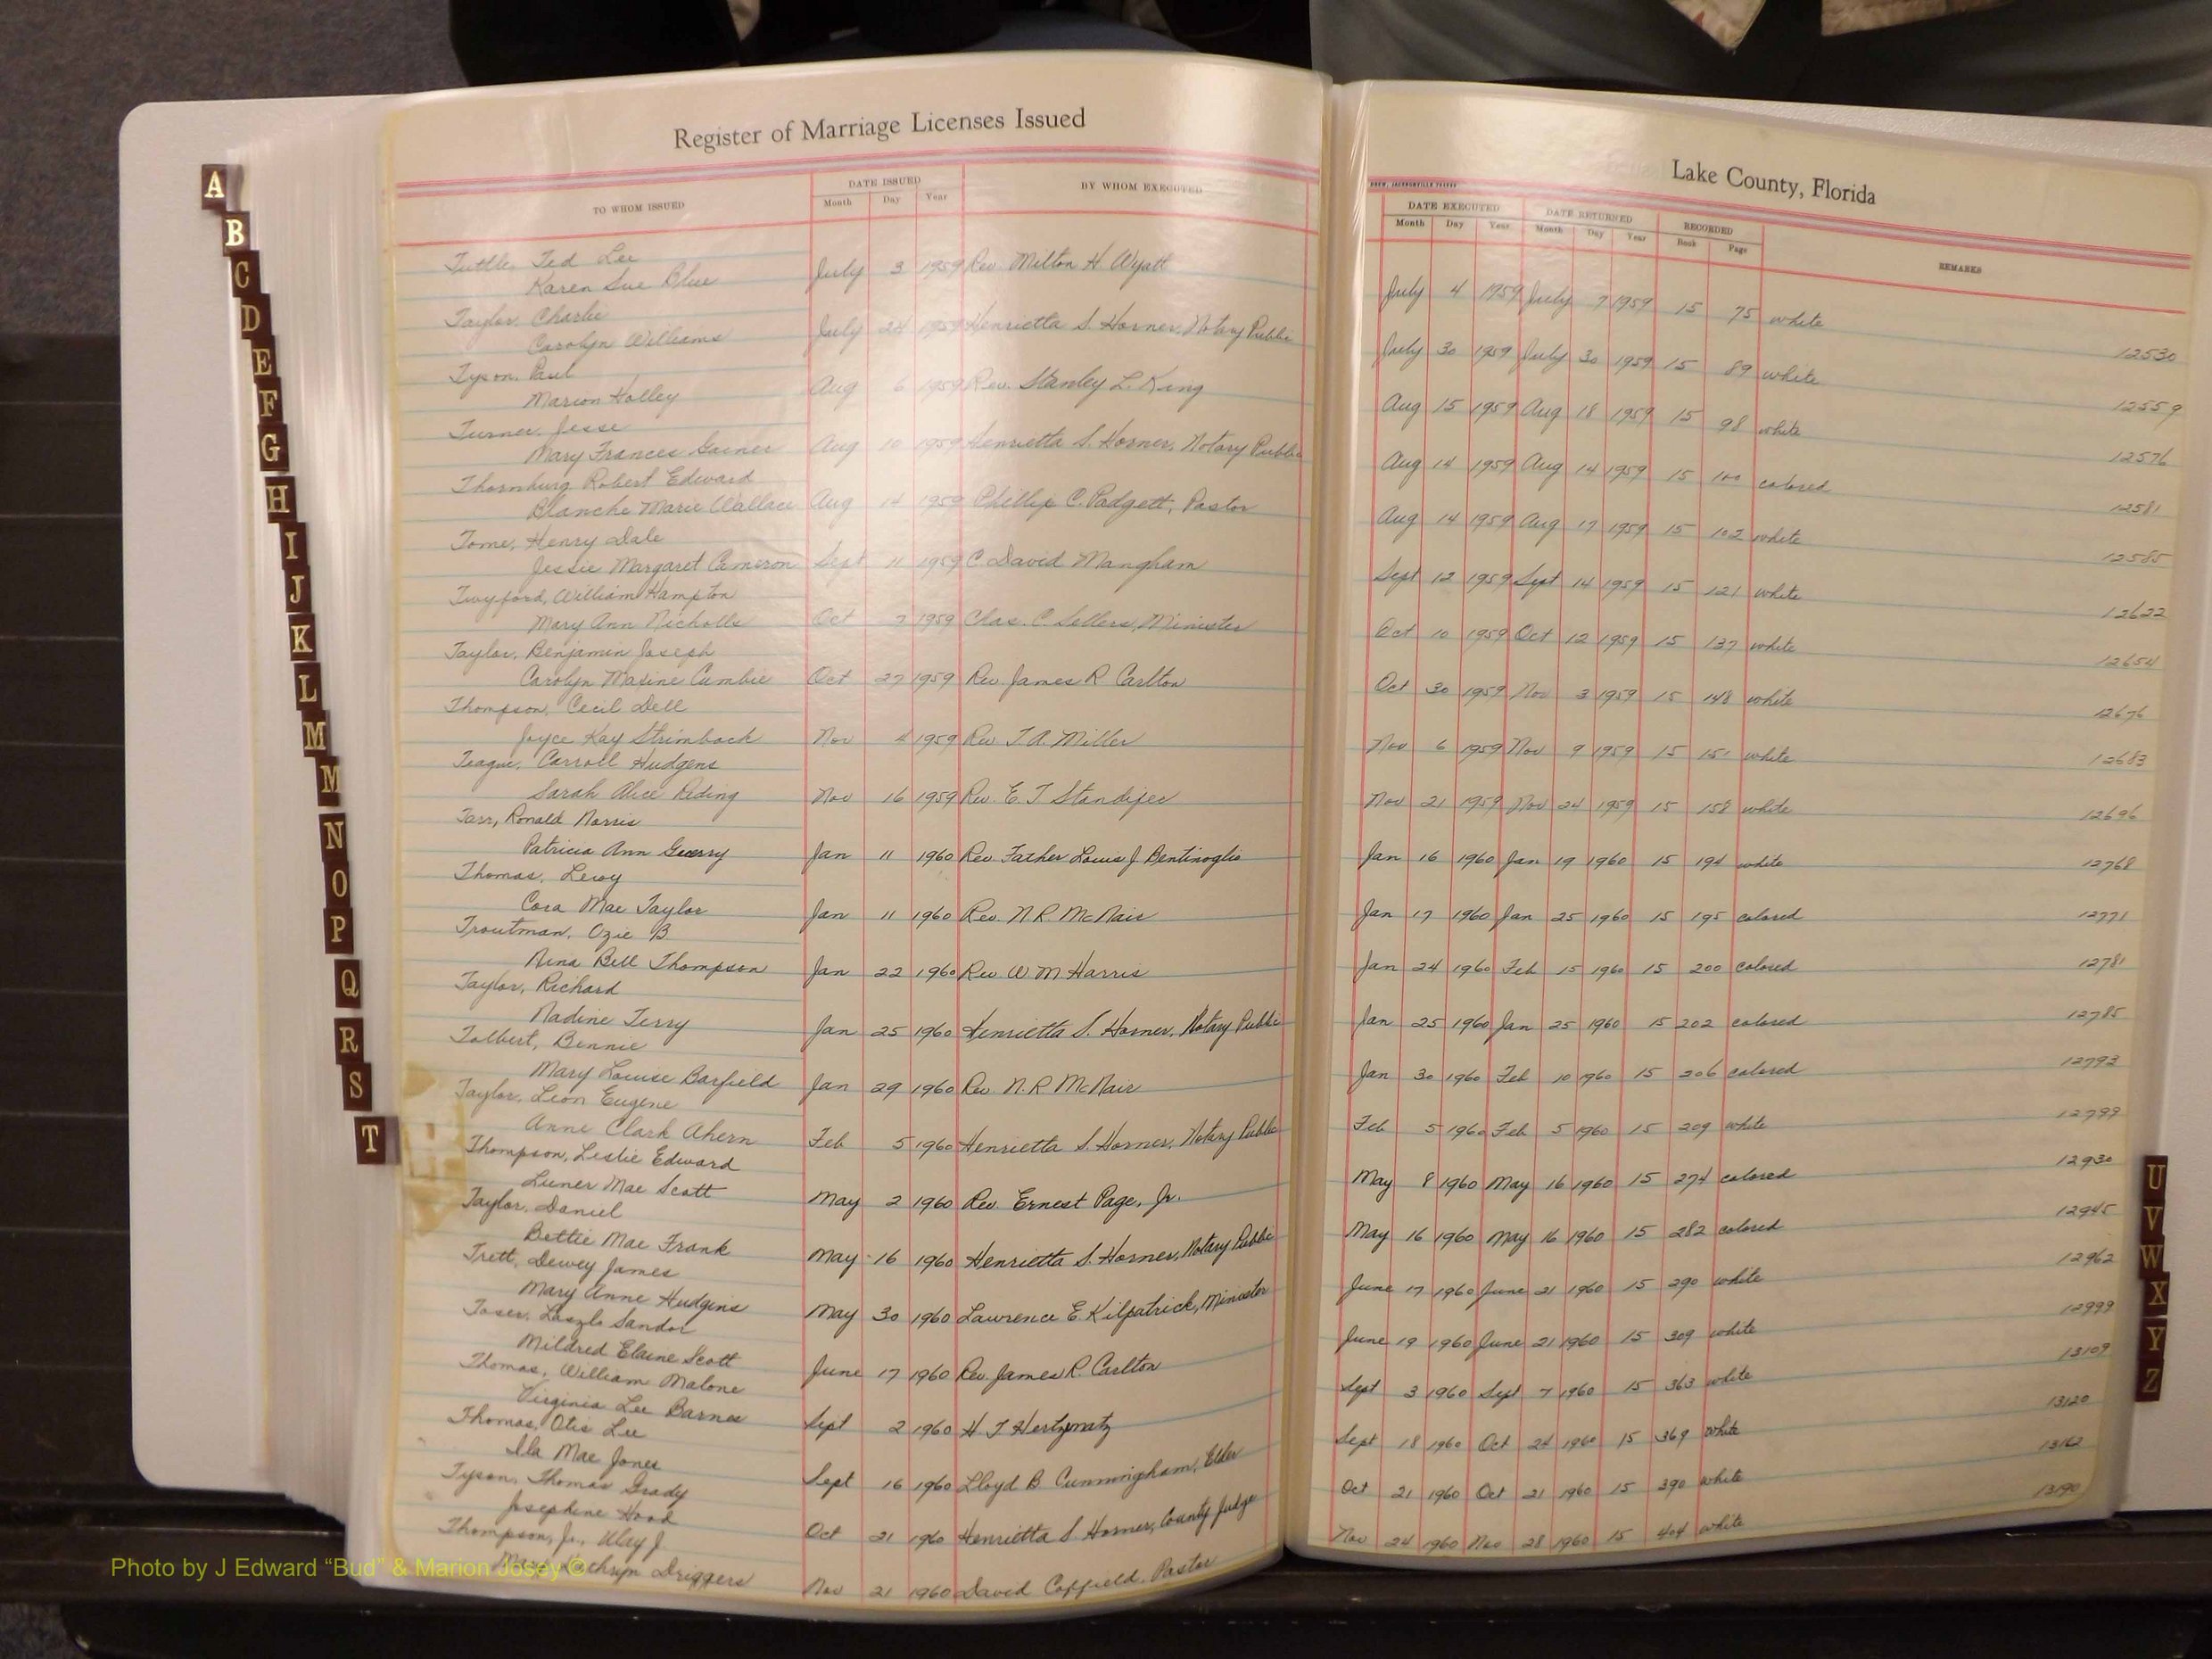 Register of Marriage Licenses Issued
Lake County, Florida
TO WHOM ISSUED
DATE ISSUED
Month Day Year
BY WHOM EXECUTED
DATE EXECUTED
Month Day Year
DATE RETURNED
Month Day Year
RECORDED
Book Page
REMARKS
Tuttle, Ted Lee
Karen Sue Blue July 3 1959 Rev. Milton H. Wyatt July 4 1959 July 7 1959 15 75 white 12530
Taylor, Charlie
Carolyn Williams July 24 1959 Henrietta S. Horner, Notary Public July 30 1959 July 30 1959 15 89 white 12559
Tyson, Paul
Marion Holley Aug 6 1959 Rev. Stanley L. King Aug 15 1959 Aug 18 1959 15 98 white 12576
Turner, Jesse
Mary Frances Gainer Aug 10 1959 Henrietta S. Horner, Notary Public Aug 14 1959 Aug 14 1959 15 100 colored 12581
Thornburg, Robert Edward
Blanche Marie Wallace Aug 14 1959 Phillip C. Padgett, Pastor Aug 14 1959 Aug 17 1959 15 102 white 12585
Tome, Henry Dale
Jessie Margaret Cameron Sept 11 1959 C David Mangham Sept 12 1959 Sept 14 1959 15 121 white 12622
Twyford, William Hampton
Mary Ann Nicholls Oct 7 1959 Chas. C. Sellers, Minister Oct 10 1959 Oct 12 1959 15 137 white 12654
Taylor, Benjamin Joseph
Carolyn Maxine Cumbie Oct 27 1959 Rev James R Carlton Oct 30 1959 Nov 3 1959 15 148 white 12676
Thompson, Cecil Dell
Joyce Kay Strimback Nov 4 1959 Rev T A. Miller Nov 6 1959 Nov 9 1959 15 151 white 12683
Teague, Carroll Hudgens
Sarah Alice Reding Nov 16 1959 Rev. E. T Standifer Nov 21 1959 Nov 24 1959 15 158 white 12696
Tarr, Ronald Norris
Patricia Ann Guerry Jan 11 1960 Rev. Father Louis J Bentinoglio Jan 16 1960 Jan 19 1960 15 194 white 12768
Thomas, Leroy
Cora Mae Taylor Jan 11 1960 Rev. N. R. McNair Jan 17 1960 Jan 25 1960 15 195 colored 12771
Troutman, Ozie B.
Nina Bell Thompson Jan 22 1960 Rev W. M Harris Jan 24 1960 Feb 15 1960 15 200 colored 12781
Taylor, Richard
Nadine Terry Jan 25 1960 Henrietta S. Horner, Notary Public Jan 25 1960 Jan 25 1960 15 202 colored 12785
Tolbert, Bennie
Mary Louise Barfield Jan 29 1960 Rev N. R McNair Jan 30 1960 Feb 10 1960 15 206 colored 12793
Taylor, Leon Eugene
Anne Clark Ahern Feb 5 1960 Henrietta S. Horner, Notary Public Feb 5 1960 Feb 5 1960 15 209 white 12799
Thompson, Leslie Edward
Luner Mae Scott May 2 1960 Rev. Ernest Page, Jr. May 8 1960 May 16 1960 15 274 colored 12930
Taylor, Daniel
Bettie Mae Frank May 16 1960 Henrietta S. Horner, Notary Public May 16 1960 May 16 1960 15 282 colored 12945
Trett, Dewey James
Mary Anne Hudgins May 30 1960 Lawrence E. Kilpatrick, Minister June 17 1960 June 21 1960 15 290 white 12962
Toser, Laszlo Sandor
Mildred Elaine Scott June 17 1960 Rev. James R. Carlton June 19 1960 June 21 1960 15 309 white 12999
Thomas, William Malone
Virginia Lee Barnes Sept 2 1960 H. T Sept 3 1960 Sept 7 1960 15 363 white 13109
Thomas, Otis Lee
Ila Mae Jones Sept 16 1960 Lloyd B Cunningham, Elder Sept 18 1960 Oct 24 1960 15 369 white 13120
Tyson, Thomas Grady
Josephine Hood Oct 21 1960 Henrietta S Horner, County Judge Oct 21 1960 Oct 21 1960 15 390 white 13162
Thompson, Jr., J
Driggers Nov 21 1960 David Coffield, Pastor Nov 24 1960 Nov 28 1960 15 404 white 13190
A
B
C
D
E
F
G
H
I
J
K
L
M
M
N
O
P
Q
R
S
T
U
V
W
X
Y
Z
Photo by J Edward “Bud” & Marion Josey ©